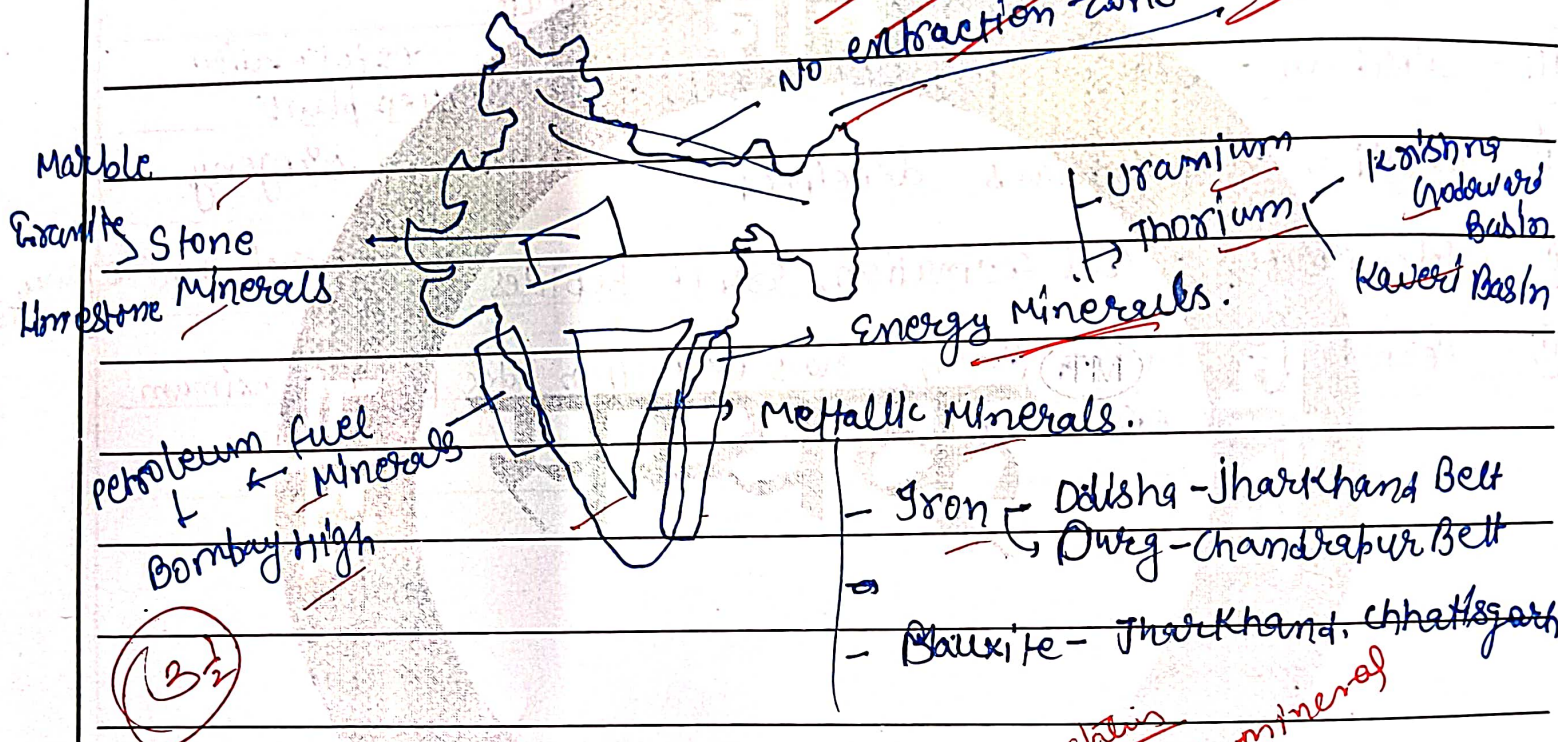 No extraction
Marble
Granite
Stone
Minerals
Limestone
Uramium
Thorium
Krishna
Godavari
Basin
Kaveri Basin
Energy Minerals.
Mettallic Minerals.
Petroleum fuel
Minerals
Bombay High
- Iron - Odisha - Jharkhand Belt
Durg - Chandrapur Belt
- Bauxite - Jharkhand, Chhattisgarh
3 1/2
mineral